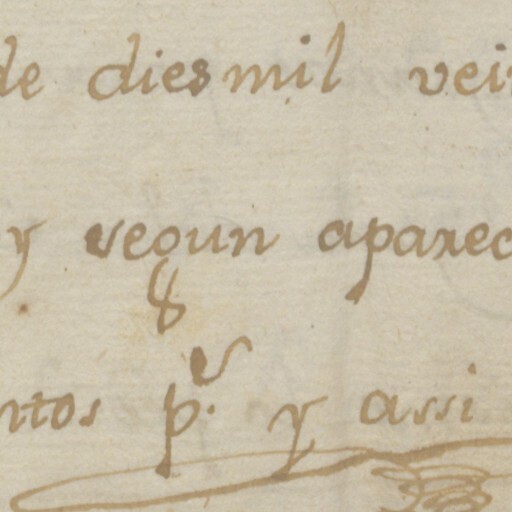 de diesmil vei
y segun aparec
ntos p.s y assi